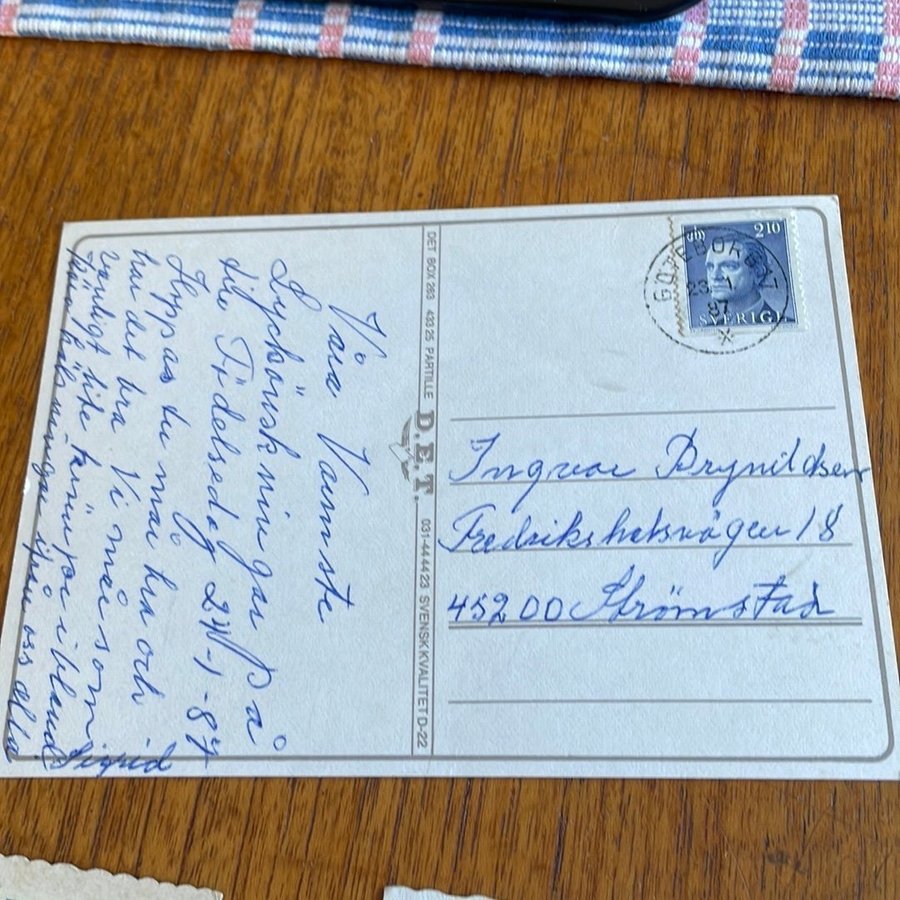 Våra Varmste
Lyckönskningar på
din Födelsedag 24-1-87
Hoppas du mår bra och
har det bra. Vi mår som
vanligt lite krämpor ibland
Kära hälsningar ifrån oss alla
Sigrid
DET BOX 263 433 25 PARTILLE
D.E.T.
031-44 44 23 SVENSK KVALITET D-22
GÖTEBORG
23 1
87
2 10
SVERIGE
Ingvar Brynildsen
Fredrikshalsvägen 18
45200 Strömstad